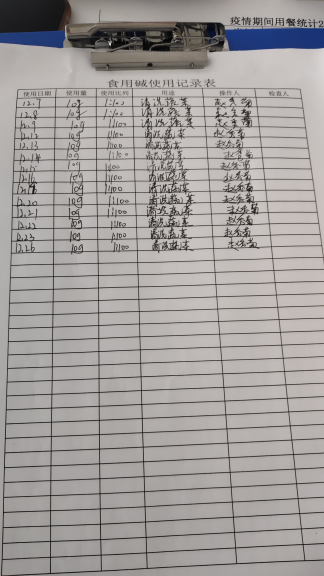 疫情期间用餐统计2
食用碱使用记录表
使用日期 使用量 使用比例 用途 操作人 检查人
12.7 10g 1:100 清洗蔬菜
12.8 10g 1:100 清洗蔬菜
12.9 10g 1:100 清洗蔬菜
12.12 10g 1:100 清洗蔬菜
12.13 10g 1:100 清洗蔬菜
12.14 10g 1:100 清洗蔬菜
12.15 10g 1:100 清洗蔬菜
12.16 10g 1:100 清洗蔬菜
10g 1:100 清洗蔬菜
12.20 10g 1:100 清洗蔬菜
12.21 10g 1:100 清洗蔬菜
12.22 10g 1:100 清洗蔬菜
12.23 10g 1:100 清洗蔬菜
12.26 10g 1:100 清洗蔬菜